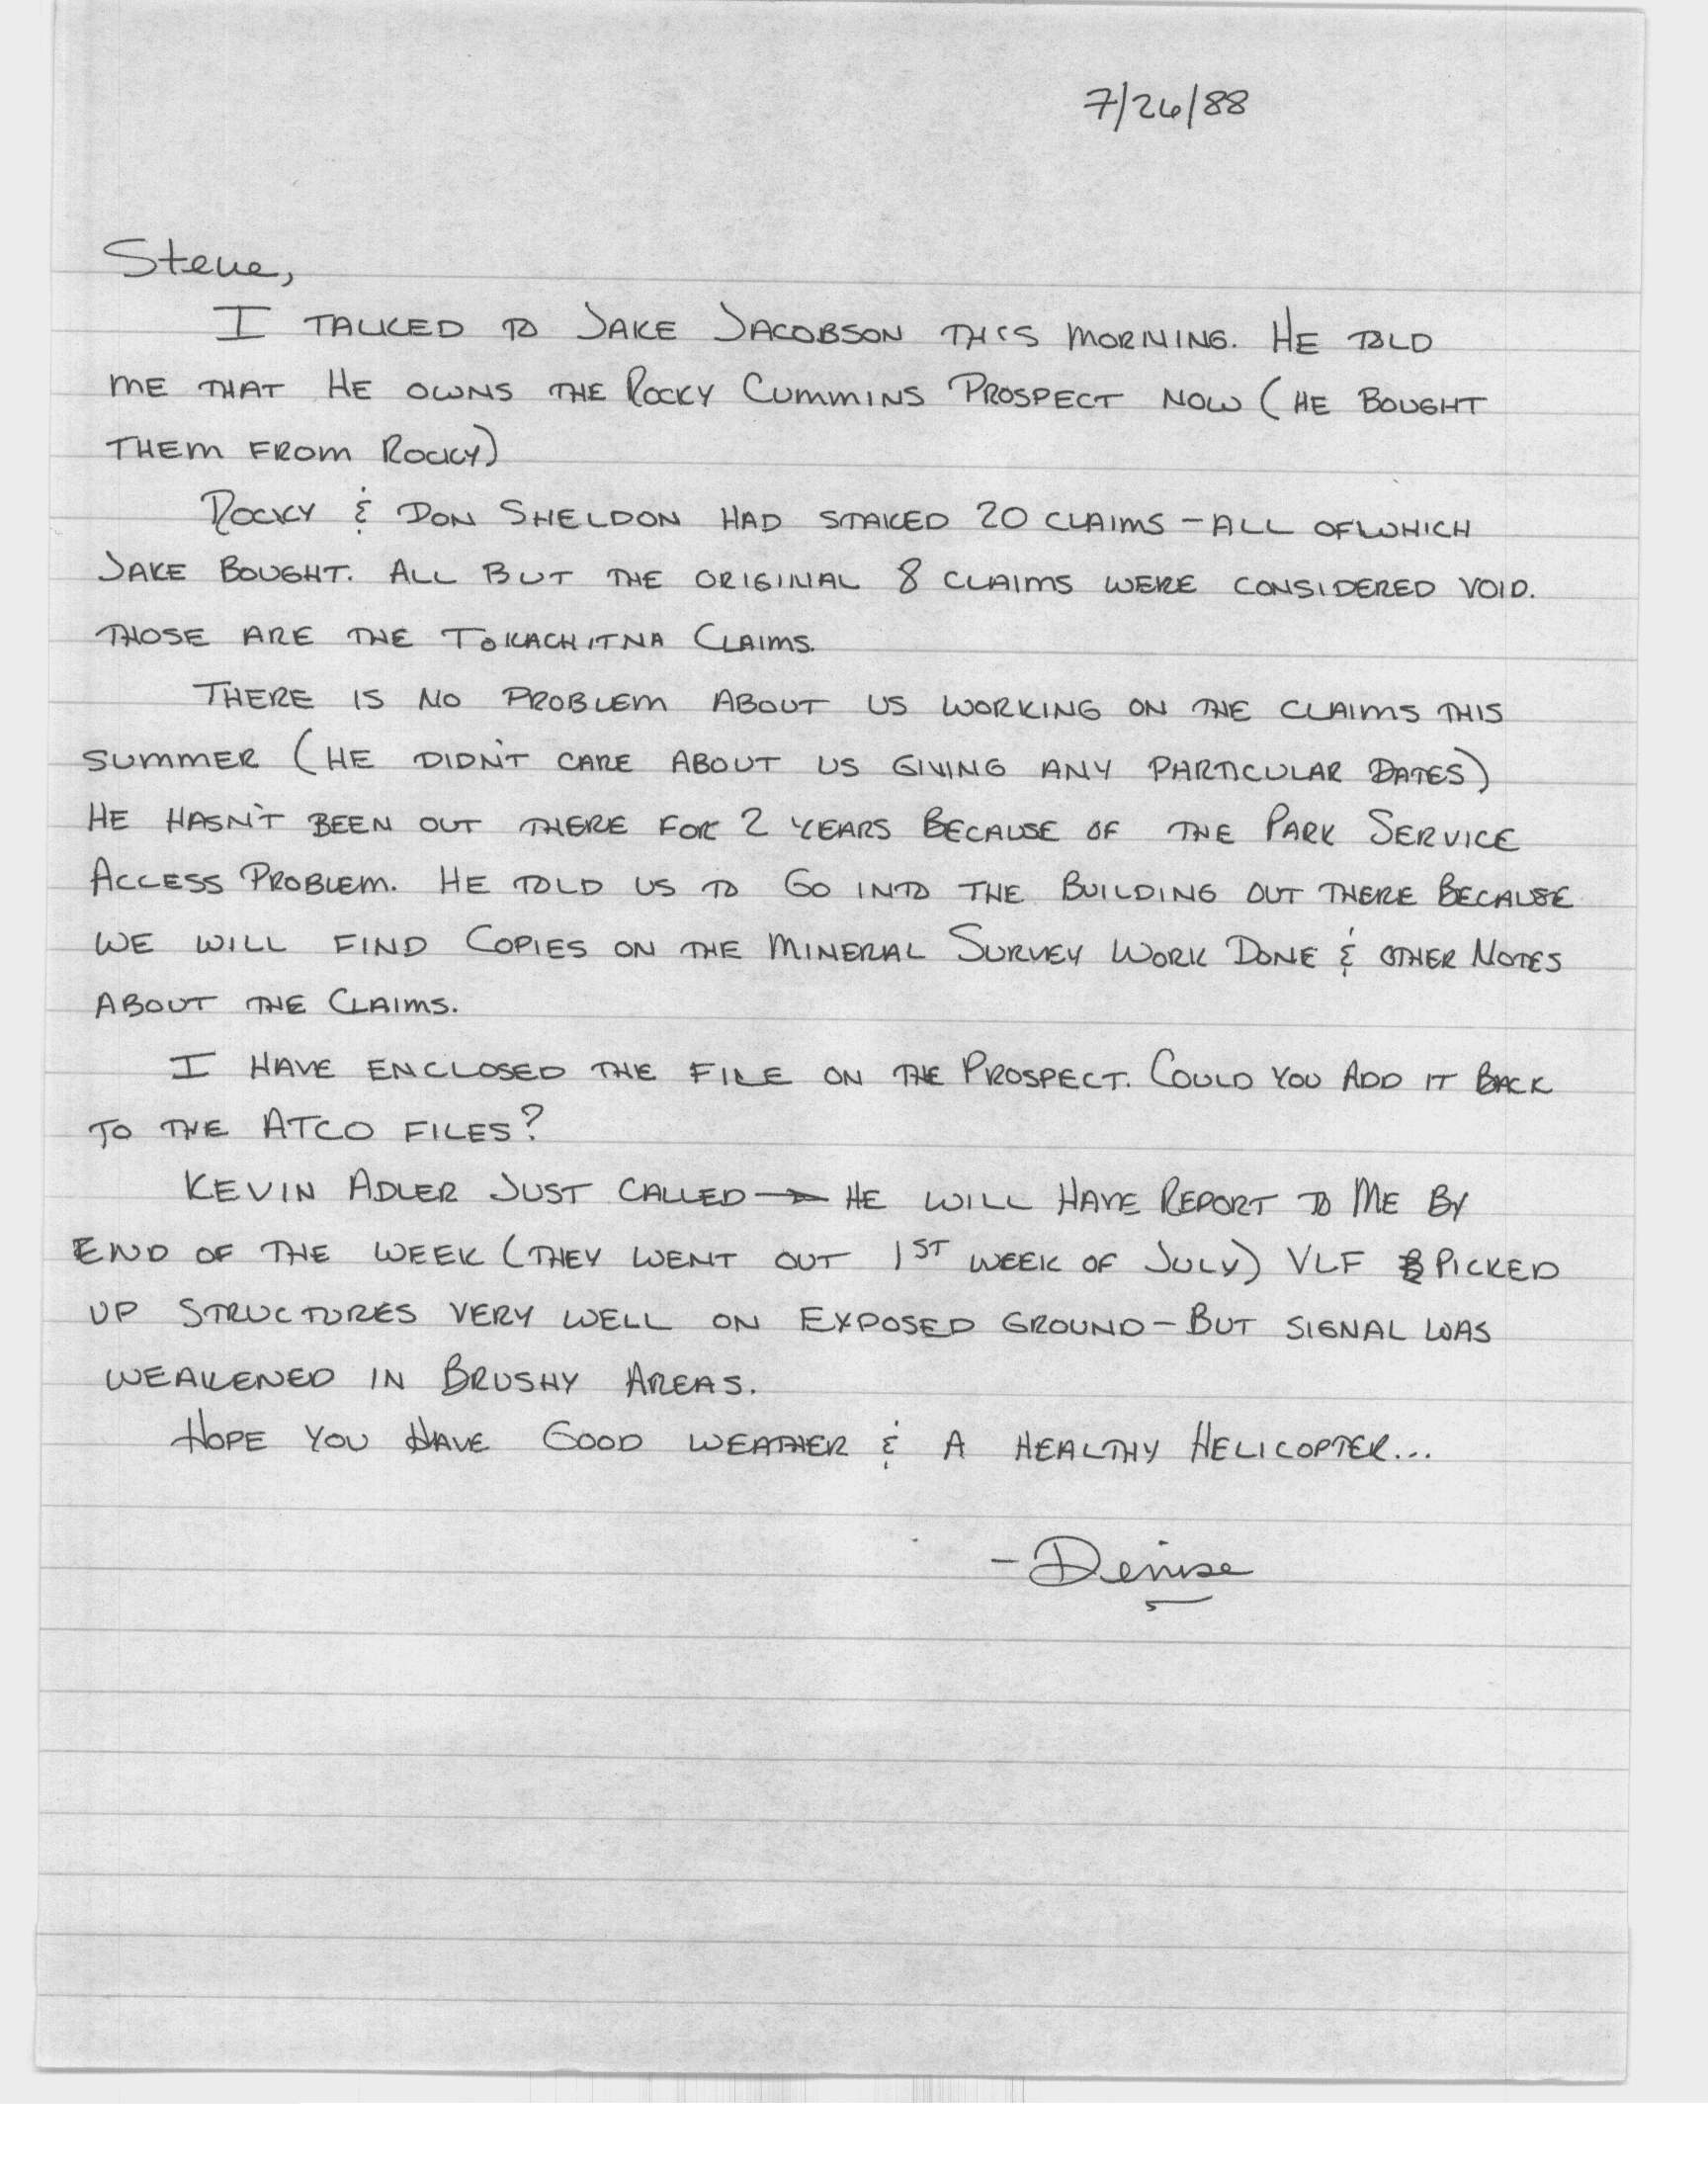 7/26/88
Steve,
I TALKED TO JAKE JACOBSON THIS MORNING. HE TOLD
ME THAT HE OWNS THE ROCKY CUMMINS PROSPECT NOW (HE BOUGHT
THEM FROM ROCKY)
ROCKY & DON SHELDON HAD STAKED 20 CLAIMS - ALL OF WHICH
JAKE BOUGHT. ALL BUT THE ORIGINAL 8 CLAIMS WERE CONSIDERED VOID.
THOSE ARE THE TOKACHITNA CLAIMS.
THERE IS NO PROBLEM ABOUT US WORKING ON THE CLAIMS THIS
SUMMER (HE DIDN'T CARE ABOUT US GIVING ANY PARTICULAR DATES)
HE HASN'T BEEN OUT THERE FOR 2 YEARS BECAUSE OF THE PARK SERVICE
ACCESS PROBLEM. HE TOLD US TO GO INTO THE BUILDING OUT THERE BECAUSE
WE WILL FIND COPIES ON THE MINERAL SURVEY WORK DONE & OTHER NOTES
ABOUT THE CLAIMS.
I HAVE ENCLOSED THE FILE ON THE PROSPECT. COULD YOU ADD IT BACK
TO THE ATCO FILES?
KEVIN ADLER JUST CALLED → HE WILL HAVE REPORT TO ME BY
END OF THE WEEK (THEY WENT OUT 1ST WEEK OF JULY) VLF PICKED
UP STRUCTURES VERY WELL ON EXPOSED GROUND - BUT SIGNAL WAS
WEAKENED IN BRUSHY AREAS.
HOPE YOU HAVE GOOD WEATHER & A HEALTHY HELICOPTER...
- Denise